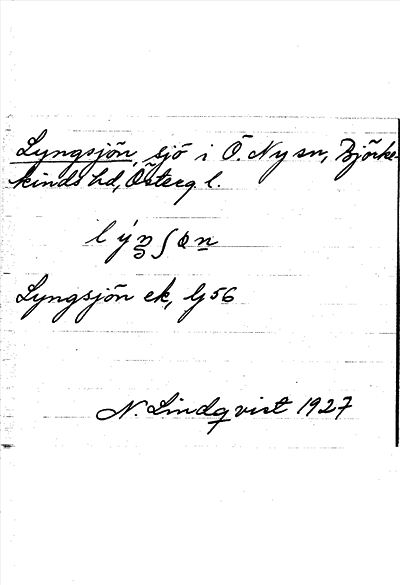 Lyngsjön, sjö i Ö. Ny sn, Björke-
kinds hd, Österg l.
Lyngsjön ek, Lj 56
N. Lindqvist 1927